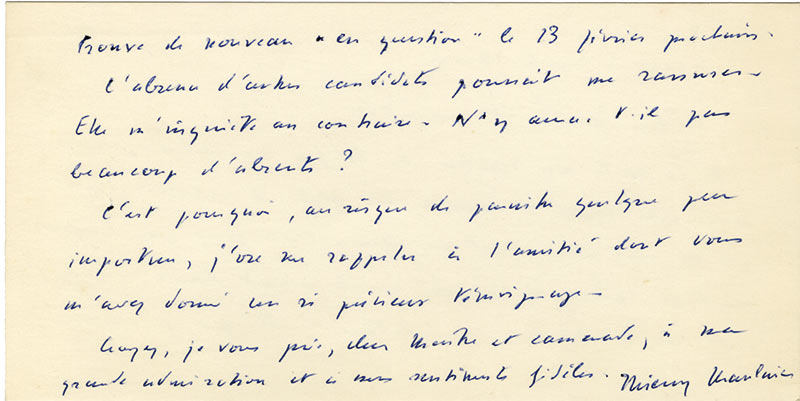 trouve de nouveau "en question" le 13 février prochain.
L'absence d'autres candidats pourrait me rassurer.
Elle m'inquiète au contraire. N'y aura-t-il pas
beaucoup d'absents ?
C'est pourquoi, au risque de paraître quelque peu
importun, j'ose me rappeler à l'amitié dont vous
m'avez donné un si précieux témoignage.
Croyez, je vous prie, cher Maître et camarade, à ma
grande admiration et à mes sentiments fidèles. Thierry Maulnier